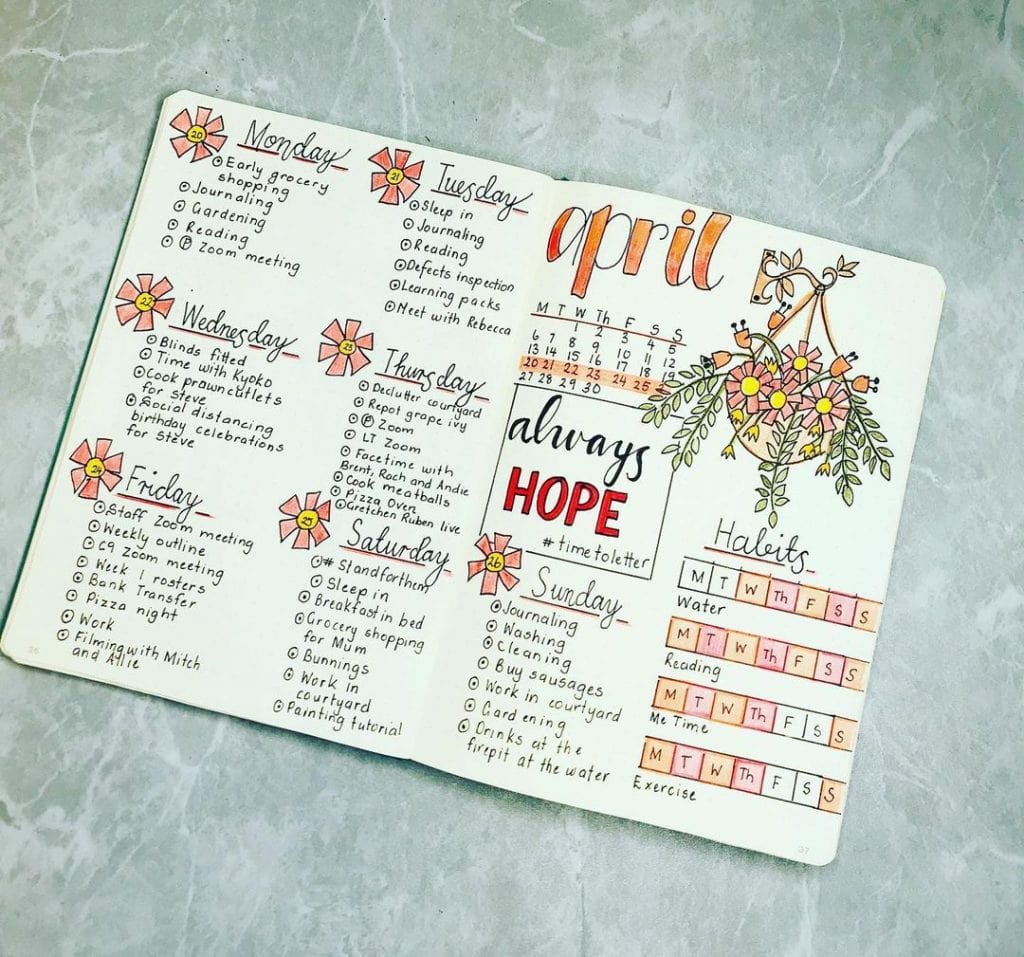 20
Monday
Early grocery
shopping
Journaling
Gardening
Reading
P Zoom meeting
21
Tuesday
Sleep in
Journaling
Reading
Defects inspection
Learning packs
Meet with Rebecca
22
Wednesday
Blinds fitted
Time with Kyoko
Cook prawn cutlets
for Steve
Social distancing
birthday celebrations
for Steve
23
Thursday
Declutter courtyard
Repot grape ivy
P Zoom
LT Zoom
Facetime with
Brent, Roch and Andie
Cook meatballs
Pizza Oven
Gretchen Ruben live
24
Friday
Staff Zoom meeting
Weekly outline
C9 Zoom meeting
Week 1 rosters
Bank Transfer
Pizza night
Work
Filming with Mitch
and Allie
25
Saturday
#Standforthem
Sleep in
Breakfast in bed
Grocery shopping
for Mum
Bunnings
Work in
courtyard
Painting tutorial
36
april
M T W Th F S S
1 2 3 4 5
6 7 8 9 10 11 12
13 14 15 16 17 18 19
20 21 22 23 24 25
27 28 29 30
always
HOPE
#timetoletter
26
Sunday
Journaling
Washing
Cleaning
Buy sausages
Work in courtyard
Gardening
Drinks at the
firepit at the water
Habits
M T W Th F S S
Water
M T W Th F S S
Reading
M T W Th F S S
Me Time
M T W Th F S S
Exercise
37